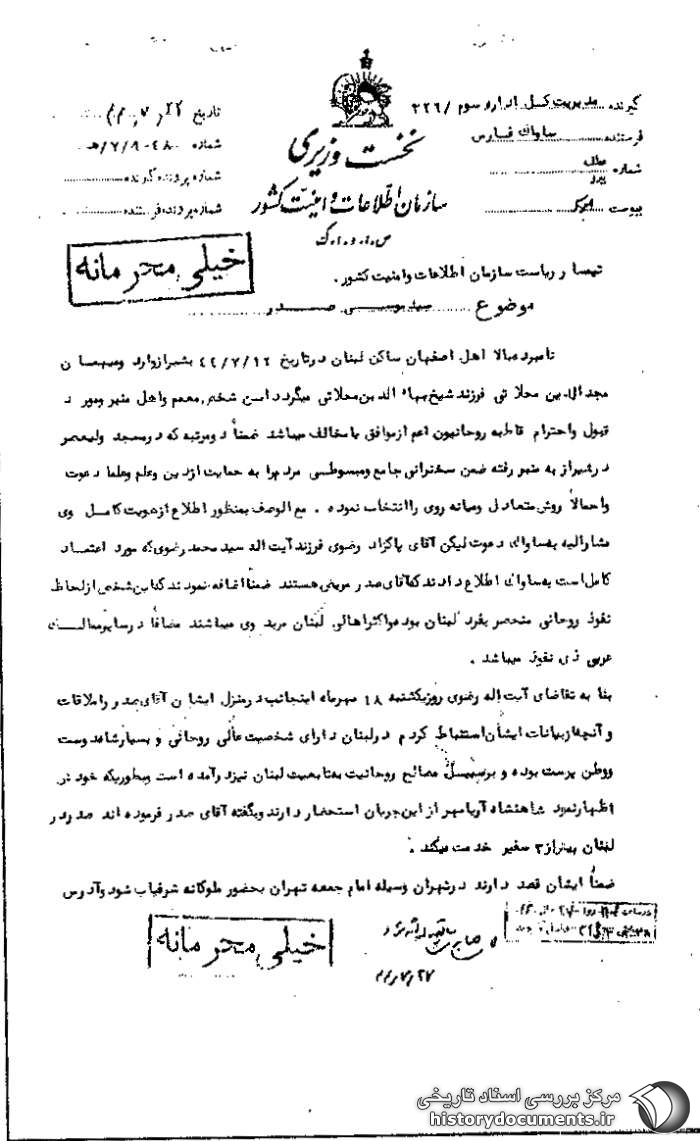 گیرنده مدیریت کل اداره سوم /۳۲۶
فرستنده ساواک فارس
شماره عطف پیرو
پیوست
نخست وزیری
سازمان اطلاعات و امنیت کشور
س.ا.و.ا.ک
تاریخ
شماره ۹۰۴۸۰/ه‍/۷
شماره پرونده گیرنده
شماره پرونده فرستنده
خیلی محرمانه
تیمسار ریاست سازمان اطلاعات و امنیت کشور.
موضوع سید موسی صدر
نامبرده بالا اهل اصفهان ساکن لبنان در تاریخ ۴۴/۷/۱۲ بشیراز وارد و میهمان
مجدالدین محلاتی فرزند شیخ بهاءالدین محلاتی میگردد این شخص معمم واهل منبر ومورد
قبول واحترام قاطبه روحانیون اعم از موافق یا مخالف میباشد ضمناً دومرتبه که در مسجد ولیعصر
در شیراز به منبر رفته ضمن سخنرانی جامع ومبسوطی مردم را به حمایت از دین وعلم وعلما دعوت
واحمالاً روش متعادل ومیانه روی را انتخاب نموده . مع الوصف بمنظور اطلاع از هویت کامل وی
مشارالیه به ساواک دعوت لیکن آقای پاکزاد رضوی فرزند آیت اله سید محمد رضوی که مورد اعتماد
کامل است به ساواک اطلاع دادند که آقای صدر مریض هستند ضمناً اضافه نمودند که این شخص از لحاظ
نفوذ روحانی منحصر بفرد لبنان بوده واکثر اهالی لبنان مرید وی میباشند مضافاً در سایر ممالک
عربی ذی نفوذ میباشد .
بنا به تقاضای آیت اله رضوی روز یکشنبه ۱۸ مهرماه اینجانب در منزل ایشان آقای صدر را ملاقات
و آنچه از بیانات ایشان استنباط کردم در لبنان دارای شخصیت عالی روحانی و بسیار شاهدوست
ووطن پرست بوده و برسبیل مصالح روحانیت بتابعیت لبنان نیز درآمده است وبطوریکه خود
اظهار نمود شاهنشاه آریامهر از این جریان استحضار دارند وبگفته آقای صدر فرموده اند صدر در
لبنان بیش از ۳ سفیر خدمت میکند .
ضمناً ایشان قصد دارند در تهران وسیله امام جمعه تهران بحضور ملوکانه شرفیاب شود وآدرس
خیلی محرمانه
۴۴/۷/۲۷
مرکز بررسی اسناد تاریخی
historydocuments.ir